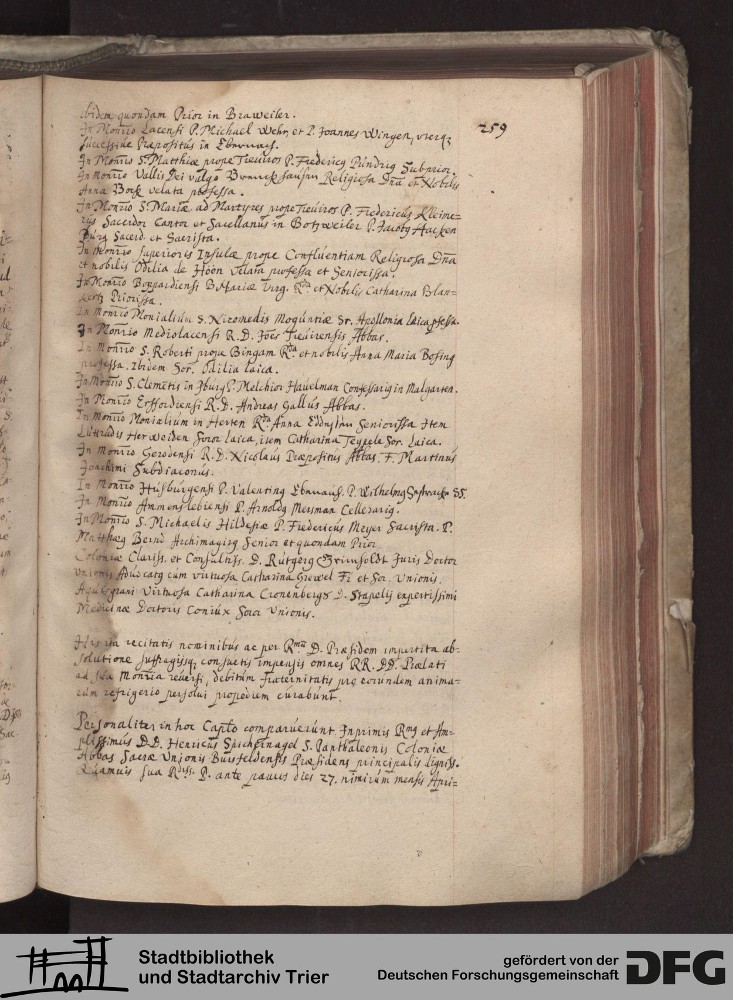 259
Ibidem quondam Prior in Braweiler.
In Monrio Lacensi P. Michael Wehr, et P. Joannes Wingen, uterq;
successive Præpositus in Ebernach.
In Monrio S. Matthiæ prope Treviros P. Fredericus Pündrig Subprior.
In Monrio Vallis Dei vulgo Religiosa Dna et Nobilis
Anna Bock velata professa.
In Monrio S. Mariæ ad Martyres prope Treviros P. Fredericus Kleine=
rus Sacerdos Cantor et Sacellanus in Botzweiler P. Jacobus Hacken
Burg Sacerd. et Sacrista.
In Monrio superioris Insulæ prope Confluentiam Religiosa Dna
et nobilis Odilia de Hoon velata professa et Seniorissa.
In Monrio Boppardiensi B. Mariæ Virg. Rda et Nobilis Catharina Blan=
Priorissa.
In Monrio Monialium S. Nicomedis Moguntiæ Sr. Apollonia laica pfessa.
In Monrio Mediolacensi R. D. Joes Trevirensis Abbas.
In Monrio S. Roberti prope Bingam Rda et nobilis Anna Maria Besing
professa. Ibidem Sor. Odilia laica.
In Monrio S. Clemetis in Iburg P. Melchior Havelman Confessarig in Malgarten.
In Monrio Erffordiensi R. D. Andreas Gallus Abbas.
In Monrio Monialium in Herten Rda Anna Seniorissa Item
Luttrudis Herweiden Soror Laica, item Catharina Teypele Sor. Laica.
In Monrio Gerodensi R. D. Nicolaus Præpositus Abbas. F. Martinus
Joachimi Subdiaconus.
In Monrio Husburgensi P. Valentinus P. Wilhelmus SS.
In Monrio Ammenslebiensi P. Arnoldus Messman Cellerarig.
In Monrio S. Michaelis Hildesiæ P. Fredericus Meyer Sacrista. P.
Matthæus Bernd Archimagirg Senior et quondam Prior.
Coloniæ Clariss. et Consultiss. D. Rutgerg Juris Doctor
Unionis Advocatg cum virtuosa Catharina Grewel Fr et Sor. Unionis.
Aquisgrani Virtuosa Catharina Cronenbergs D. Stapelij expertissimi
Medicinæ Doctoris Coniux Soror Unionis.
His ita recitatis nominibus ac per Rmu D. Præsidem impertita ab=
solutione suffragijsq; consuetis impensis omnes RR. DD. Prælati
ad sua Monria reversi, debitum fraternitatis pro eorundem anima=
rum refrigerio persolvi propediem curabunt.
Personaliter in hoc Capto comparuerunt Inprimis Rmus et Am=
plissimus D.D. Henricus Spichernagel S. Panthaleonis Coloniæ
Abbas Sacræ Unionis Bursfeldensis Præsidens principalis digniss.
Quamvis sua Rdiss. P. ante paucos dies 27. nimirum mensis Apri=
Stadtbibliothek
und Stadtarchiv Trier
gefördert von der
Deutschen Forschungsgemeinschaft
DFG